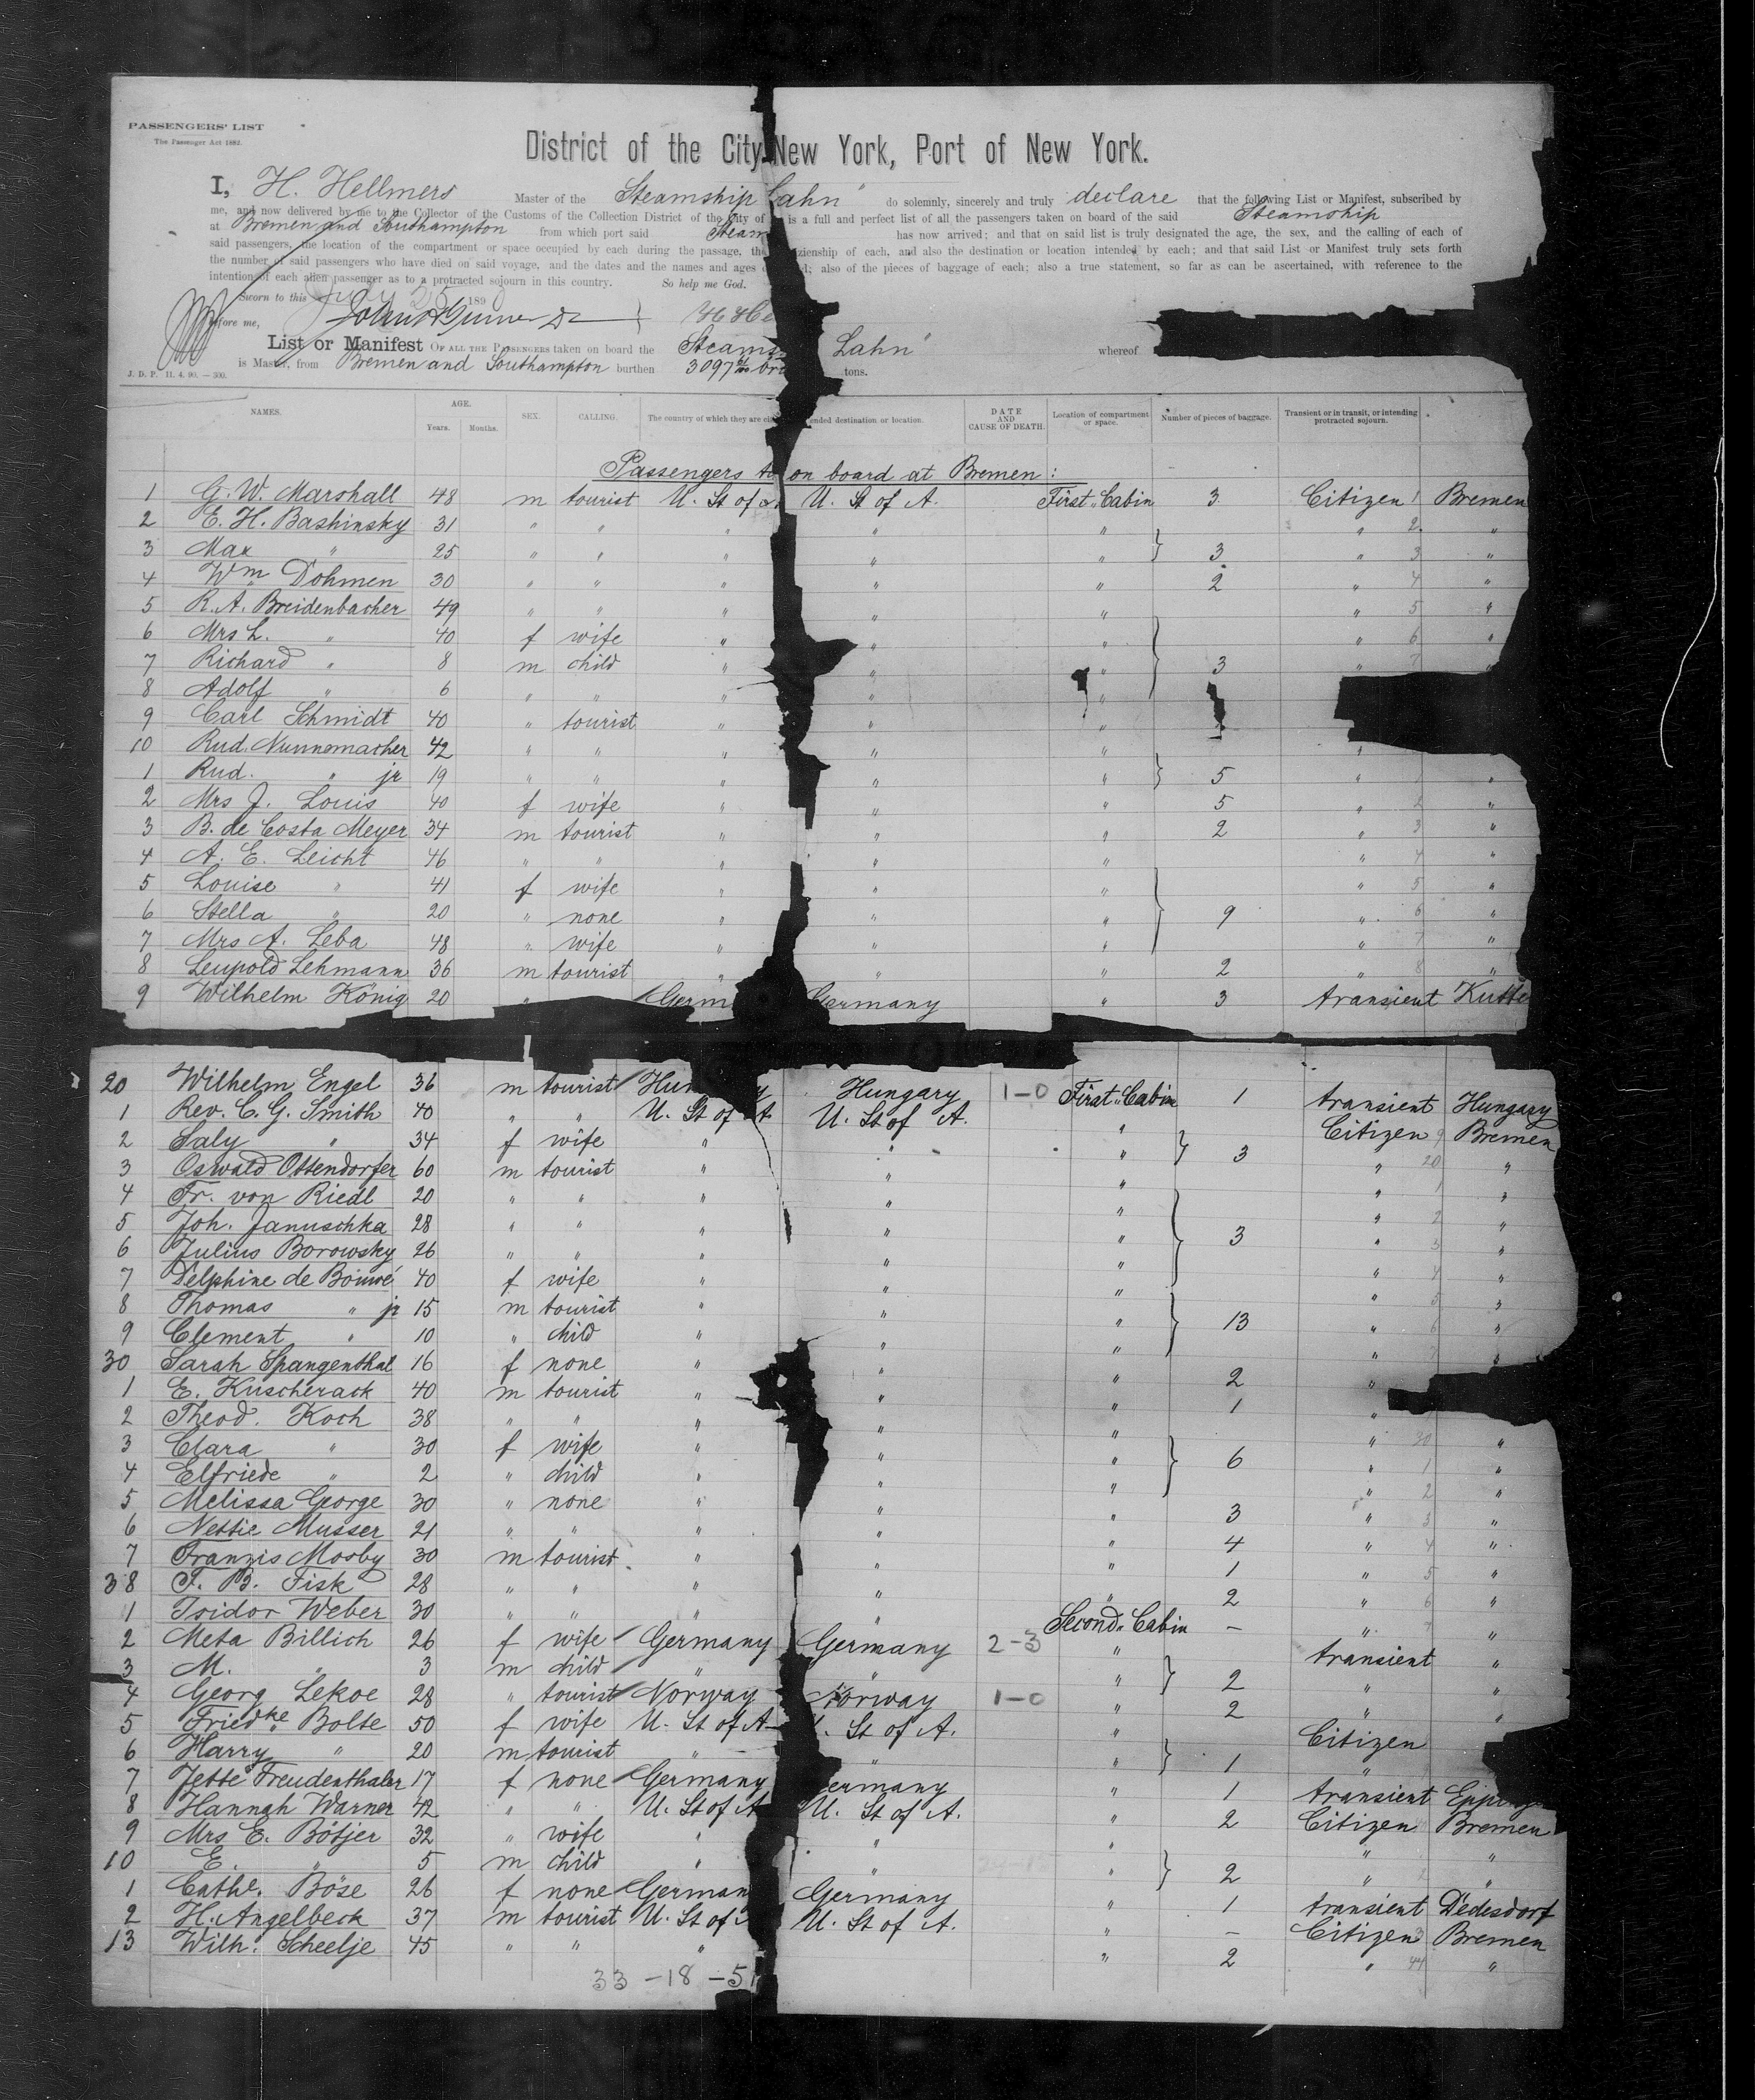 PASSENGERS' LIST
The Passenger Act 1882.
District of the City New York, Port of New York.
I, H. Hellmers Master of the Steamship Lahn" do solemnly, sincerely and truly declare that the following List or Manifest, subscribed by
me, and now delivered by me to the Collector of the Customs of the Collection District of the City of is a full and perfect list of all the passengers taken on board of the said Steamship
at Bremen and Southampton from which port said Steam has now arrived; and that on said list is truly designated the age, the sex, and the calling of each of
said passengers, the location of the compartment or space occupied by each during the passage, the zienship of each, and also the destination or location intended by each; and that said List or Manifest truly sets forth
the number of said passengers who have died on said voyage, and the dates and the names and ages also of the pieces of baggage of each; also a true statement, so far as can be ascertained, with reference to the
intention of each alien passenger as to a protracted sojourn in this country. So help me God.
Sworn to this July 25 189
before me,
List or Manifest OF ALL THE PASSENGERS taken on board the Steams Lahn" whereof
is Master, from Bremen and Southampton burthen 3097 tons.
J. D. P. 11. 4. 90. — 300.
NAMES. AGE. Years. Months. SEX. CALLING. The country of which they are ended destination or location. DATE AND CAUSE OF DEATH. Location of compartment or space. Number of pieces of baggage. Transient or in transit, or intending protracted sojourn.
Passengers on board at Bremen :
1 G. W. Marshall 48 m tourist U. St of A U. St of A. First Cabin 3 Citizen 1 Bremen
2 E. H. Bashinsky 31 " " " " " " 2 "
3 Max " 25 " " " " " } 3 " 3 "
4 Wm Dohmen 30 " " " " " 2 " 4 "
5 R. A. Breidenbacher 49 " " " " " " 5 "
6 Mrs L. " 40 f wife " " " " 6 "
7 Richard " 8 m child " " " } 3 " 7 "
8 Adolf " 6 " " " " "
9 Carl Schmidt 40 " tourist " " "
10 Rud. Nunnemacher 42 " " " " " "
1 Rud. " jr 19 " " " " " } 5 " 1 "
2 Mrs J. Louis 40 f wife " " " 5 " 2 "
3 B. de Costa Meyer 34 m tourist " " " 2 " 3 "
4 A. E. Leicht 46 " " " " " " 4 "
5 Louise " 41 f wife " " " " 5 "
6 Stella " 20 " none " " " } 9 " 6 "
7 Mrs A. Leba 48 " wife " " " " 7 "
8 Leupold Lehmann 36 m tourist " " " 2 " 8 "
9 Wilhelm König 20 " Germ Germany " 3 transient
20 Wilhelm Engel 36 m tourist Hun y Hungary 1-0 First Cabin 1 transient Hungary
1 Rev. C. G. Smith 40 " " U. St of A U. St of A. " Citizen 9 Bremen
2 Saly " 34 f wife " " " } 3 " 20 "
3 Oswald Ottendorfer 60 m tourist " " " " 1 "
4 Fr. von Riedl 20 " " " " " " 2 "
5 Joh. Januschka 28 " " " " " } 3 " 3 "
6 Julius Borowsky 26 " " " " " " 4 "
7 Delphine de Bouwé 40 f wife " " " " 5 "
8 Thomas " jr 15 m tourist " " " } 13 " 6 "
9 Clement " 10 " child " " " " 7 "
30 Sarah Spangenthal 16 f none " " " 2 "
1 E. Kuscherack 40 m tourist " " " 1 "
2 Theod. Koch 38 " " " " " " 30 "
3 Clara " 30 f wife " " " } 6 " 1 "
4 Elfriede " 2 " child " " " " 2 "
5 Melissa George 30 " none " " " 3 " 3 "
6 Nettie Musser 21 " " " " " 4 " 4 "
7 Franzis Mosby 30 m tourist " " " 1 " 5 "
38 F. B. Fisk 28 " " " " " 2 " 6 "
1 Isidor Weber 30 " " " " Second Cabin – " 7 "
2 Meta Billich 26 f wife Germany Germany 2-3 " transient "
3 M. " 3 m child " " " } 2 " "
4 Georg Lekoe 28 " tourist Norway Norway 1-0 " 2 " "
5 Friedke Bolte 50 f wife U. St of A St of A. " Citizen
6 Harry " 20 m tourist " " " } 1 "
7 Jette Freudenthaler 17 f none Germany ermany " 1 transient
8 Hannah Warner 42 " " U. St of A U. St of A. " 2 Citizen Bremen
9 Mrs E. Bötjer 32 " wife " " " " "
10 E. " 5 m child " " " } 2 " "
1 Cathe. Böse 26 f none German Germany " 1 transient Dedesdorf
2 H. Angelbeck 37 m tourist U. St of U. St of A. " – Citizen 3 Bremen
13 Wilh. Scheelje 45 " " " " 2 " 44 "
33 - 18 - 51